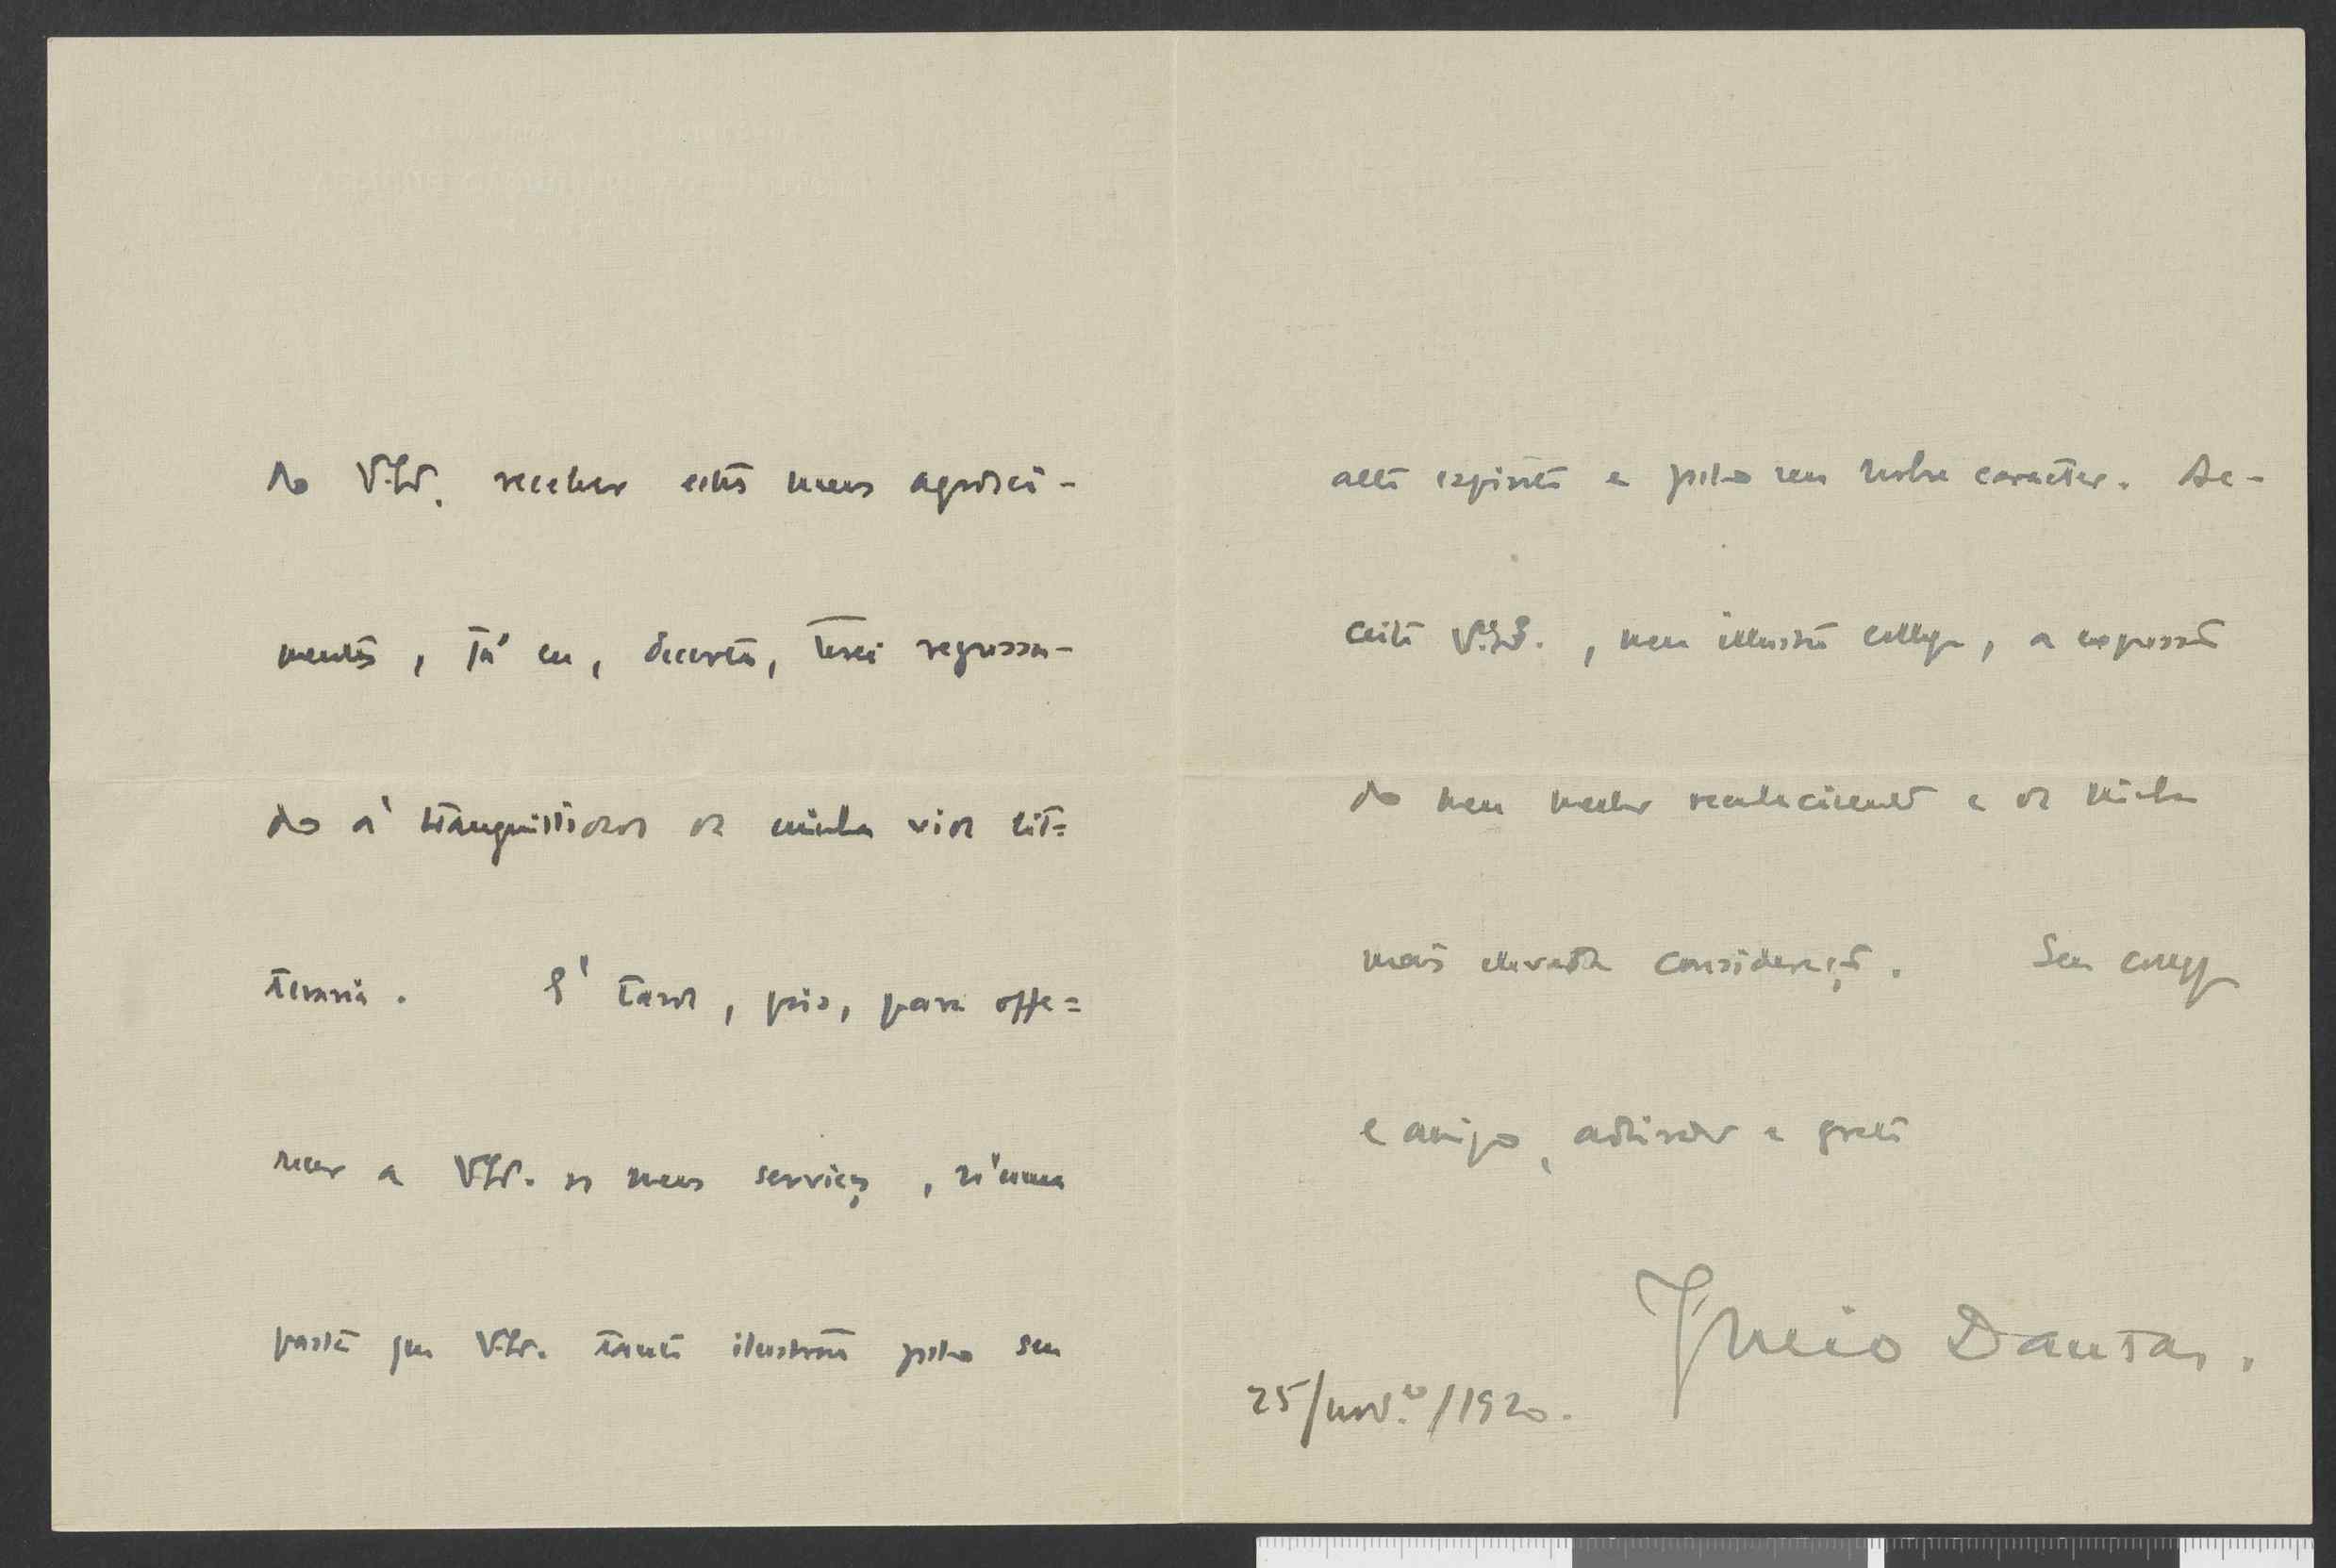 do V.Ex.ª receber estes meus agradeci-
mentos, já eu, decerto, terei regressa-
do á tranquillidade da minha vida lit=
teraria. E' tarde, pois, para offe=
recer a V.Ex.ª os meus serviços, n'uma
pasta que V.Ex.ª tanto ilustrou pelo seu
alto espirito e pelo seu nobre caracter. Ac-
ceite V.Ex.ª, meu illustre collega, a expressão
do meu melhor reconhecimento e da minha
mais elevada consideração. Seu collega
e amigo, admirador e grato
Julio Dantas.
25/nov.º/1920.